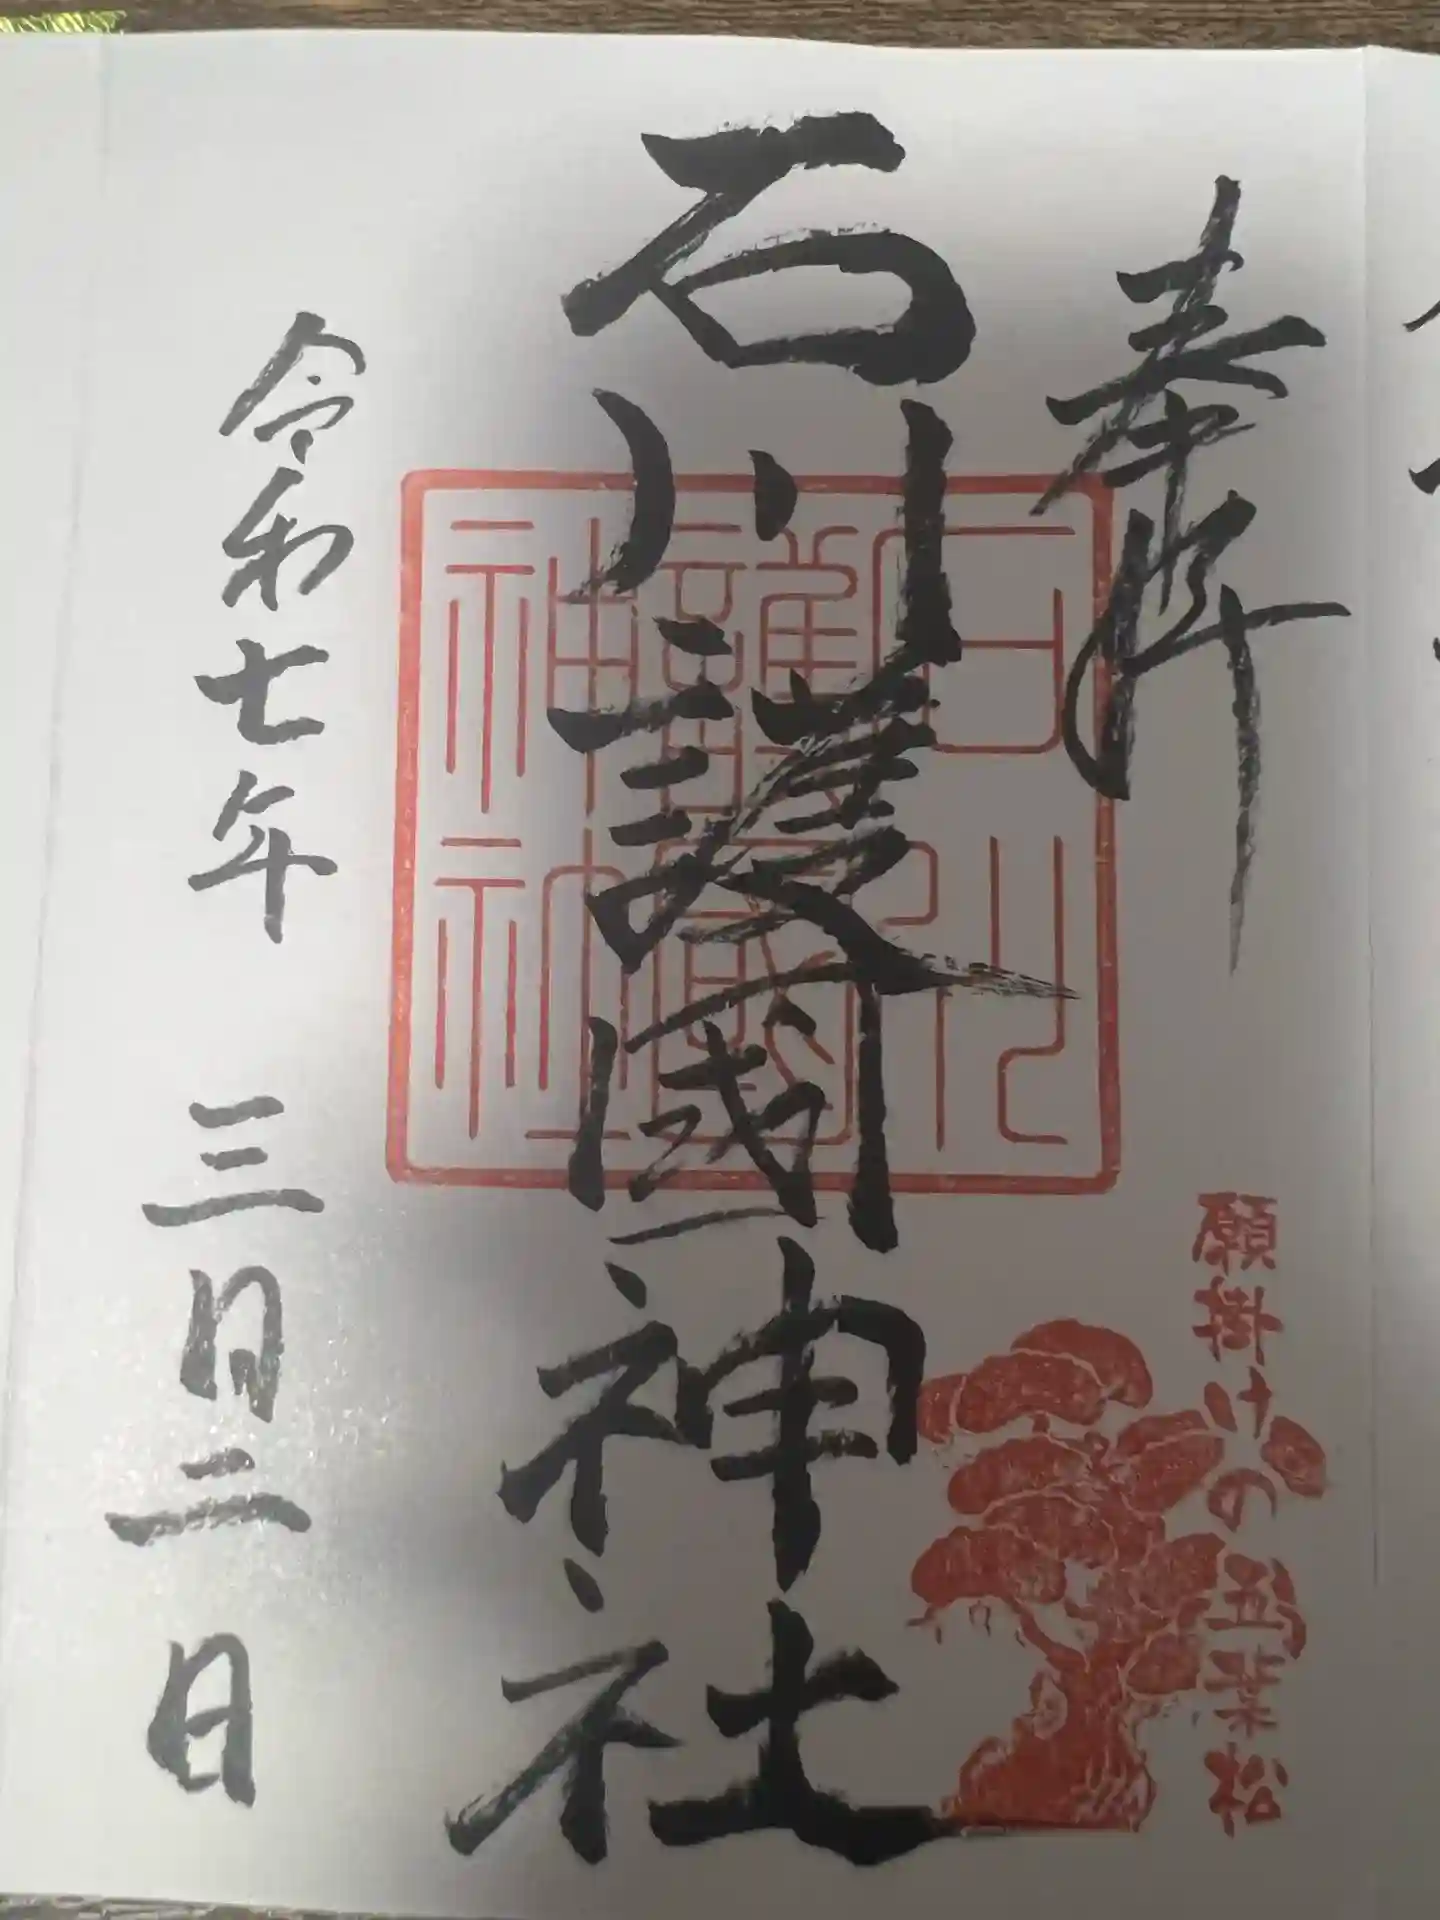 奉拝
願掛けの五葉松
石川護國神社
石川
護國
神社
令和七年 三月二日